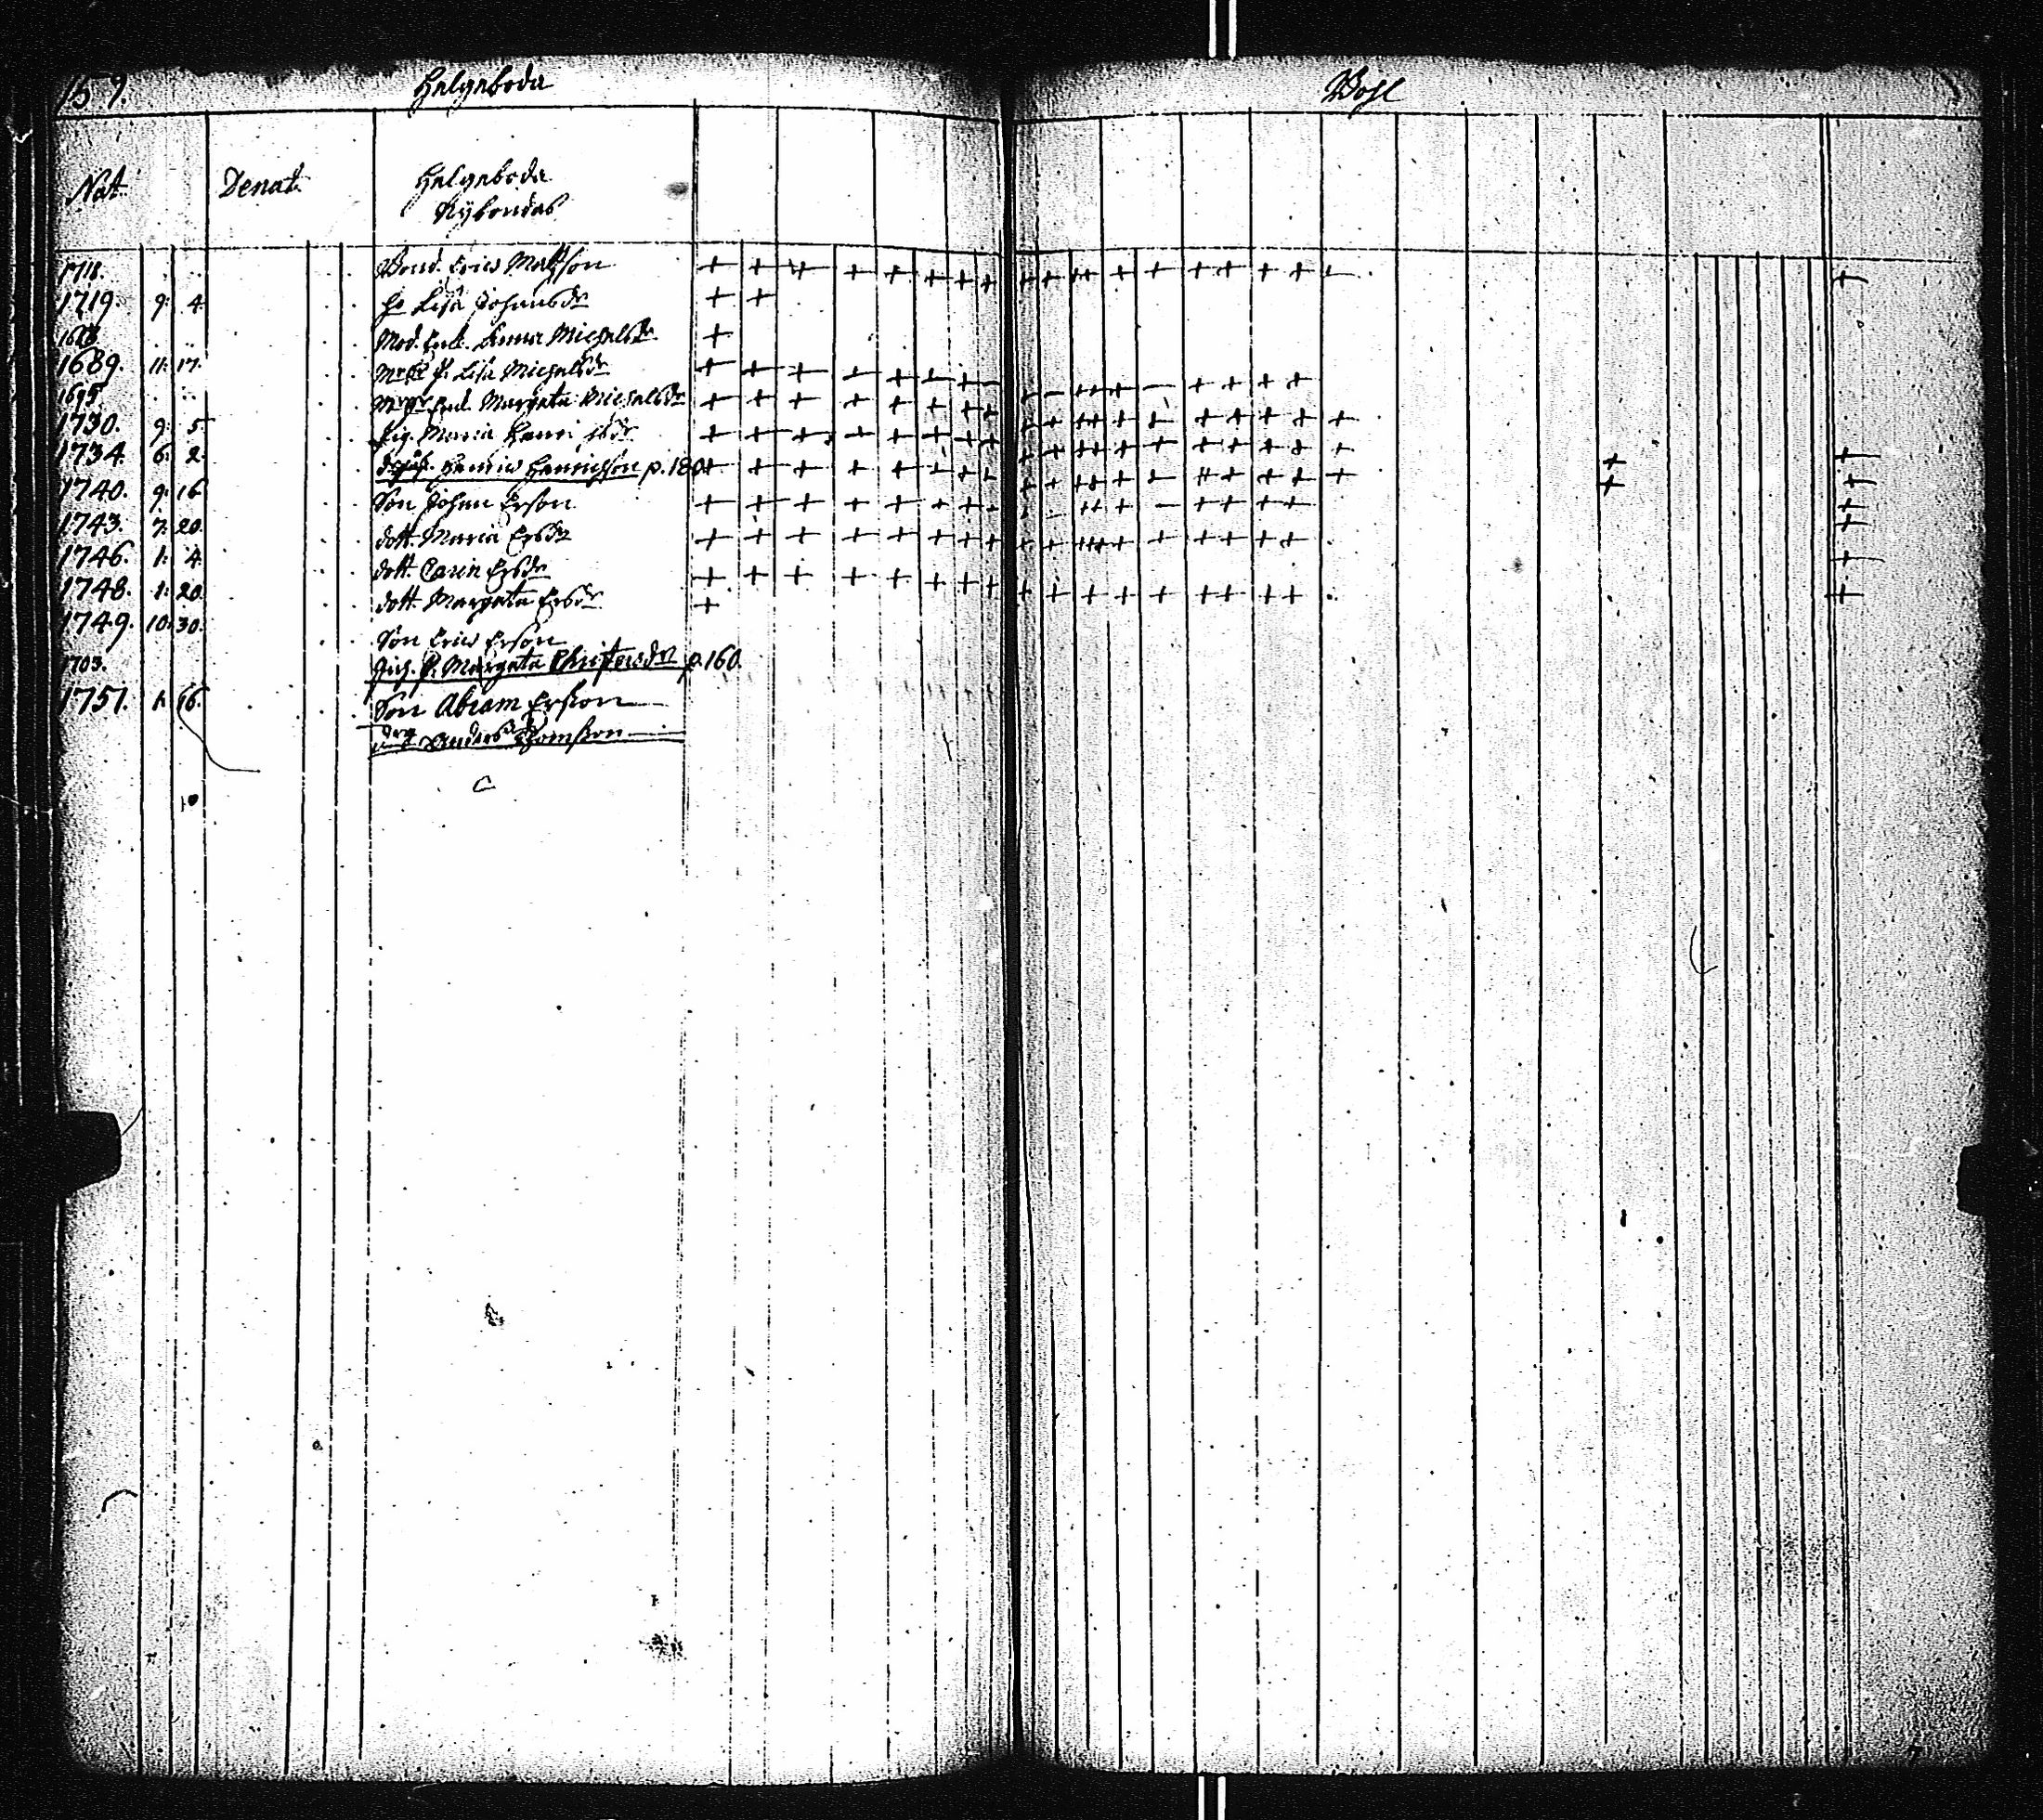 157. Helgeboda Bohl
Nat. Denat. Helgeboda
Nybondas
1718. Bond. Erics Matsson
1719. 9: 4. H. Lisa Johansdr
Mod. Enk. Anna Michelsdr
1689. 11: 17. Lisa Michelsdr
1695. Enk. Margeta Michelsdr
1730. 9: 5. Pig. Maria
1734. 6: 2. Henric Henricsson p. 180
1740. 9: 16 Son Johan Erson
1743. 7: 20. dott. Maria Ersdr
1746. 1: 4. dott. Carin Ersdr
1748. 1: 20. dott. Margeta Ersdr
1749. 10: 30. Son Eric Erson
1703. Margeta Christersdr p. 160.
1751. 1. 16. Son Abram Ersson
drg Anders Thomsson